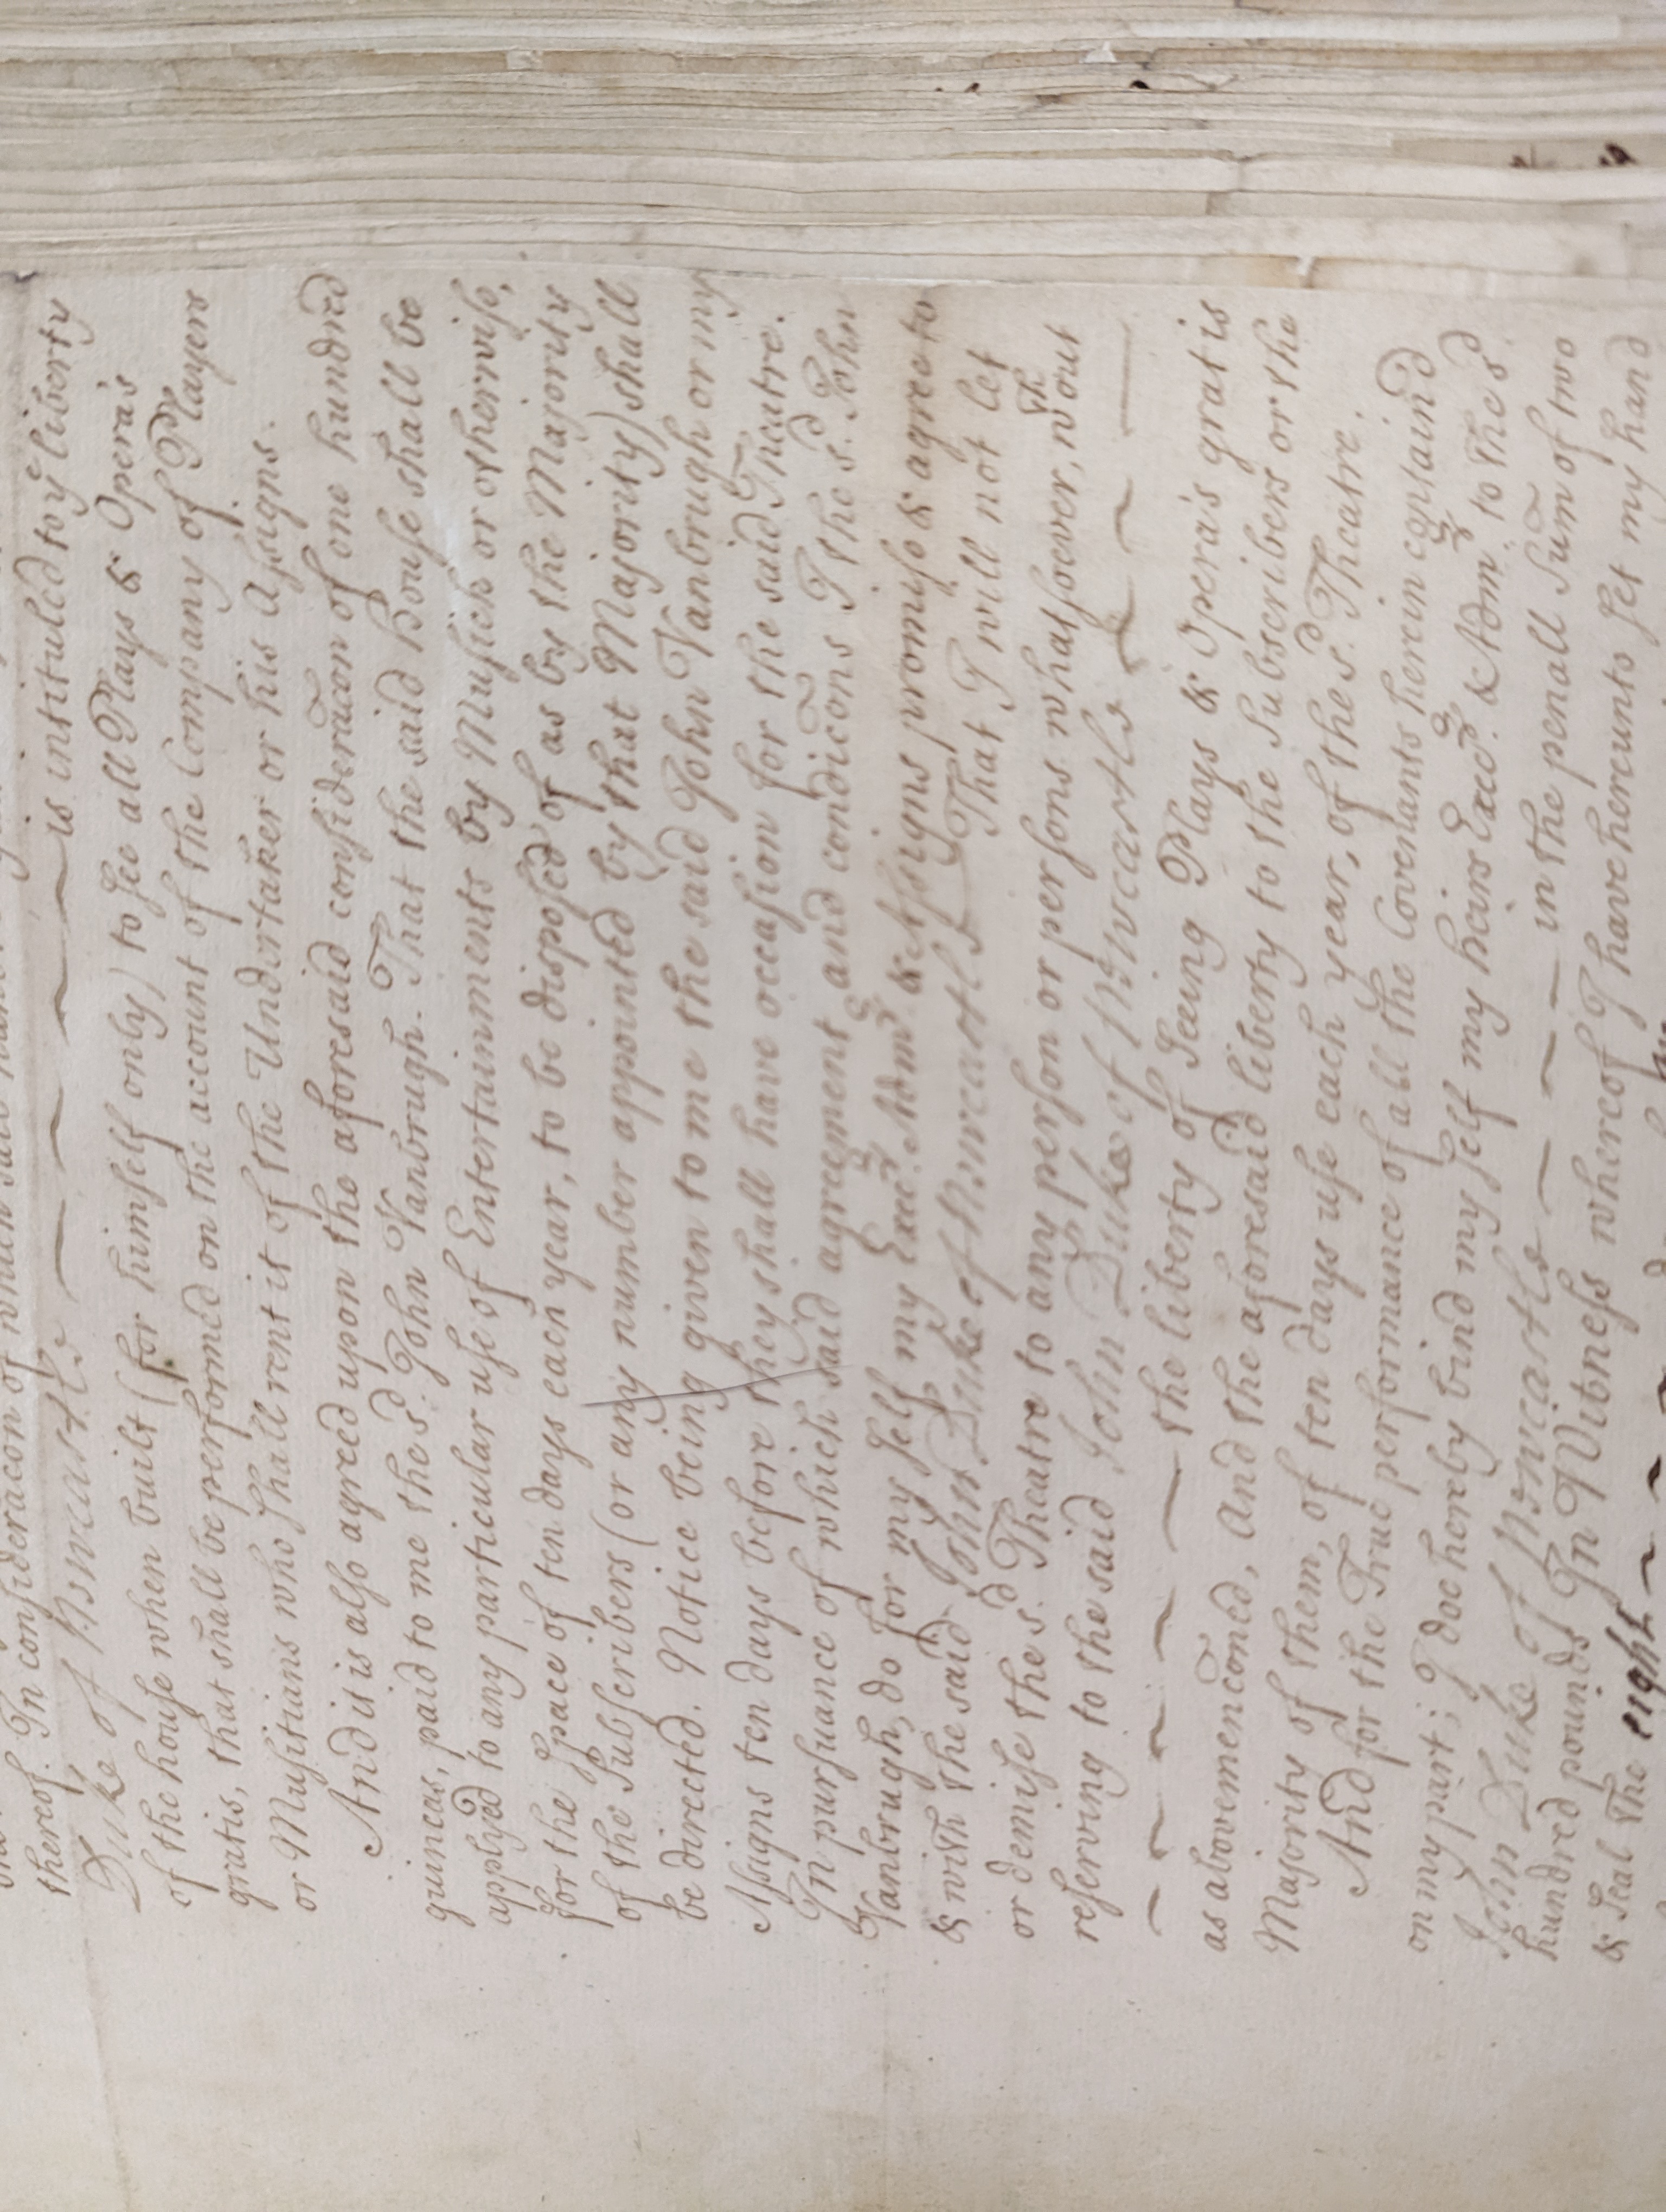 thereof. In consideracon of which said
Duke of Newcastle — — — — is intituled to ye liberty
of the house when built (for himself only) to see all Plays & Opera's
gratis, that shall be performed on the account of the Company of Players
or Musitians who shall rent it of the Undertaker or his Assigns.
And it is also agreed upon the aforesaid consideracon of one hundred
guineas, paid to me the sd. John Vanbrugh. That the said house shall be
applyed to any particular use of Entertainments by Musick or otherwise,
for the space of ten days each year, to be disposed of as by the Majority
of the Subscribers (or any number appointed by that Majority) shall
be directed. Notice being given to me the said John Vanbrugh or my
Assigns ten days before they shall have occasion for the said Theatre.
In pursuance of which said agreement and condicons I the sd. John
Vanbrugh, do for my self my Execrs. Admrs. & Assigns promise & agree to
& with the said John Duke of Newcastle That I will not let
or demise the sd. Theatre to any person or persons whatsoever, wthout
reserving to the said John Duke of Newcastle ~ ~ ~ —
— ~ ~ ~ ~ — the liberty of seeing Plays & Opera's gratis
as abovemenconed, and the aforesaid liberty to the Subscribers or the
Majority of them, of ten days use each year, of the sd. Theatre.
And for the True performance of all the Covenants herein contained
on my part; I doe hereby bind my self my heirs Execrs. & Admrs. to the sd.
John Duke of Newcastle — — — — in the penall Sum of two
hundred pounds In Witness whereof I have hereunto set my hand
& Seal The eight ~ ~ ~